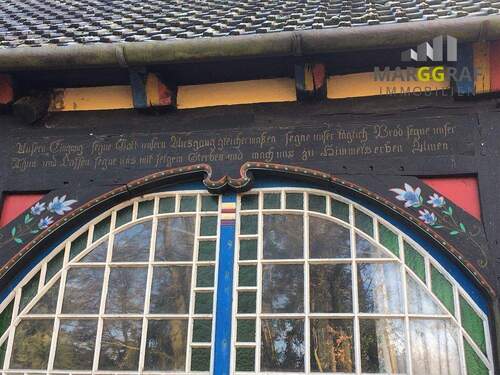 MARGGRAF
IMMOBILIEN
Unsern Eingang segne Gott unsern Ausgang gleichermaßen segne unser täglich Brod segne unser
Thun und Lassen segne uns mit selgem Sterben und mach uns zu Himmelserben Amen.